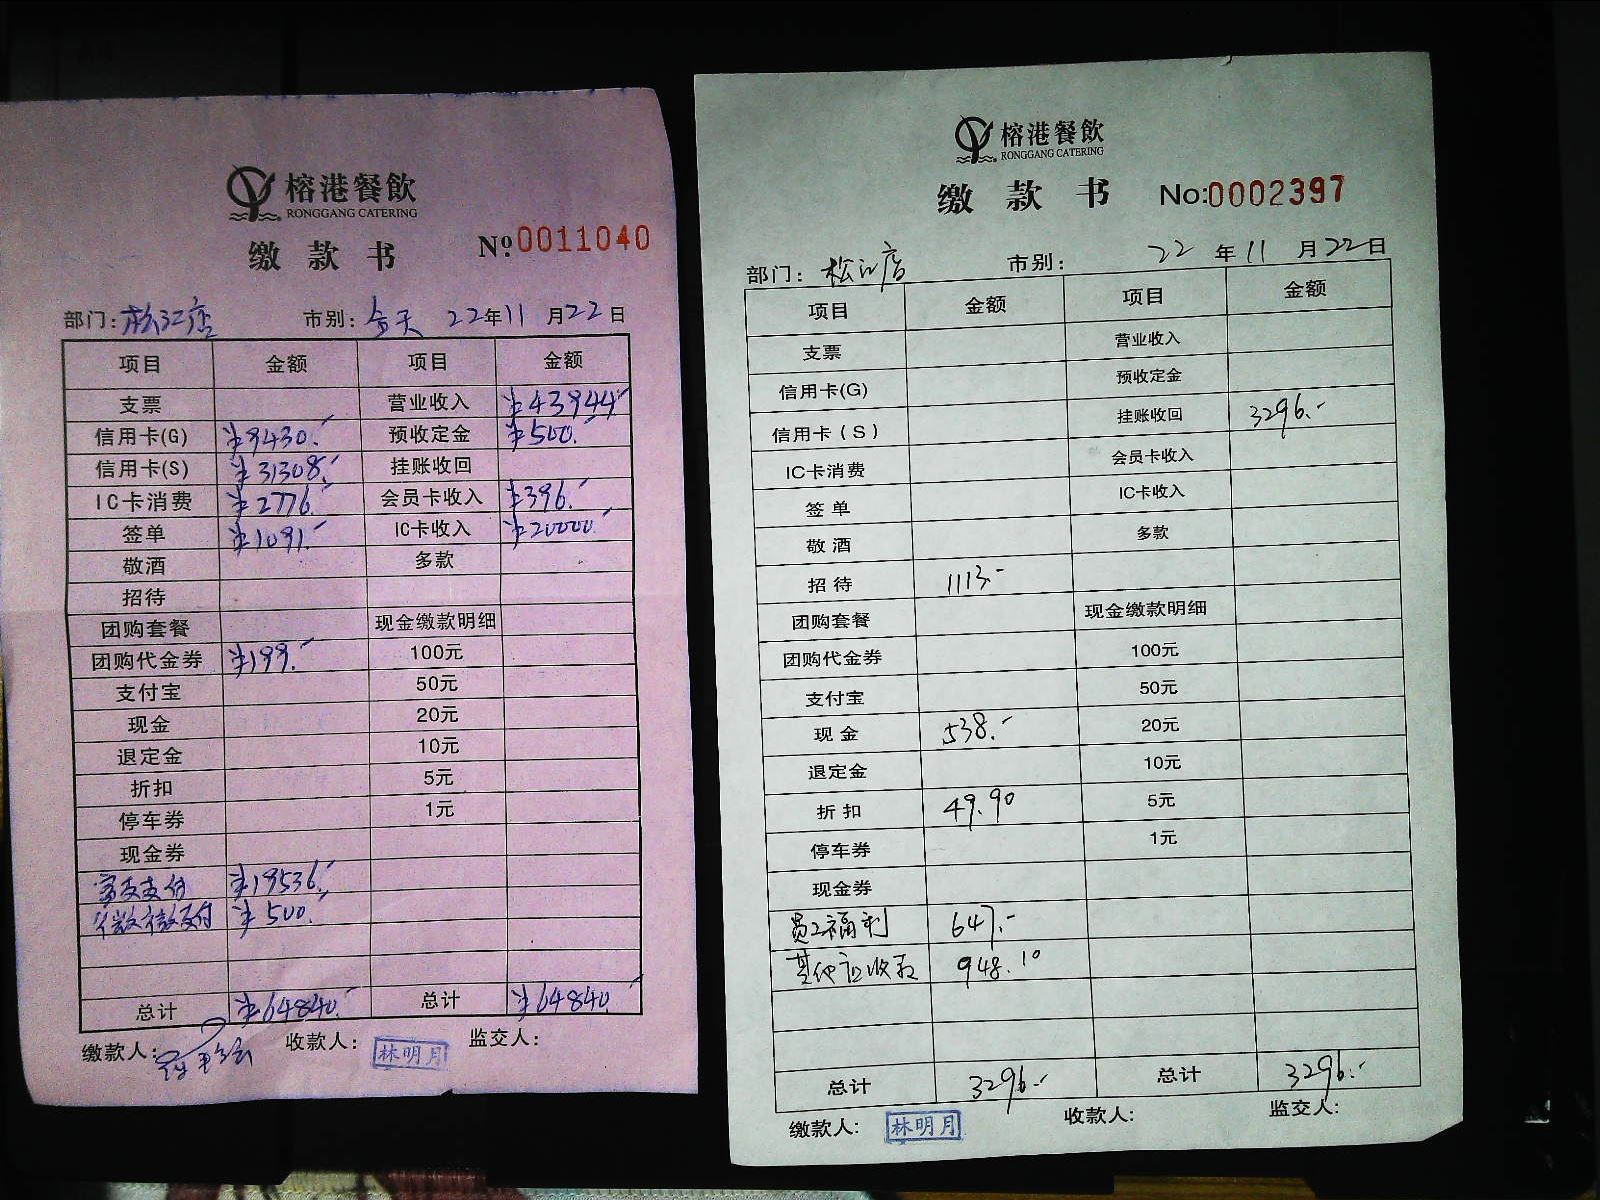 榕港餐飲
RONGGANG CATERING
缴款书 Nº.0011040
部门:松江店 市别:全天 22年11月22日
项目 金额 项目 金额
支票 营业收入 ¥43944.-
信用卡(G) ¥9430.- 预收定金 ¥500.-
信用卡(S) ¥31308.- 挂账收回
IC卡消费 ¥2776.- 会员卡收入 ¥396.-
签单 ¥1091.- IC卡收入 ¥20000.-
敬酒 多款
招待
团购套餐 现金缴款明细
团购代金券 ¥199.- 100元
支付宝 50元
现金 20元
退定金 10元
折扣 5元
停车券 1元
现金券
支付 ¥19536.-
微支付 ¥500.-
总计 ¥64840.- 总计 ¥64840.-
缴款人: 收款人: 林明月 监交人:
榕港餐飲
RONGGANG CATERING
缴款书 No:0002397
部门: 松江店 市别: 22年11月22日
项目 金额 项目 金额
支票 营业收入
信用卡(G) 预收定金
信用卡(S) 挂账收回 3296.-
IC卡消费 会员卡收入
签单 IC卡收入
敬酒 多款
招待 1113.-
团购套餐 现金缴款明细
团购代金券 100元
支付宝 50元
现金 538.- 20元
退定金 10元
折扣 49.90 5元
停车券 1元
现金券
员工福利 647.-
其他应收款 948.10
总计 3296.- 总计 3296.-
缴款人: 林明月 收款人: 监交人: